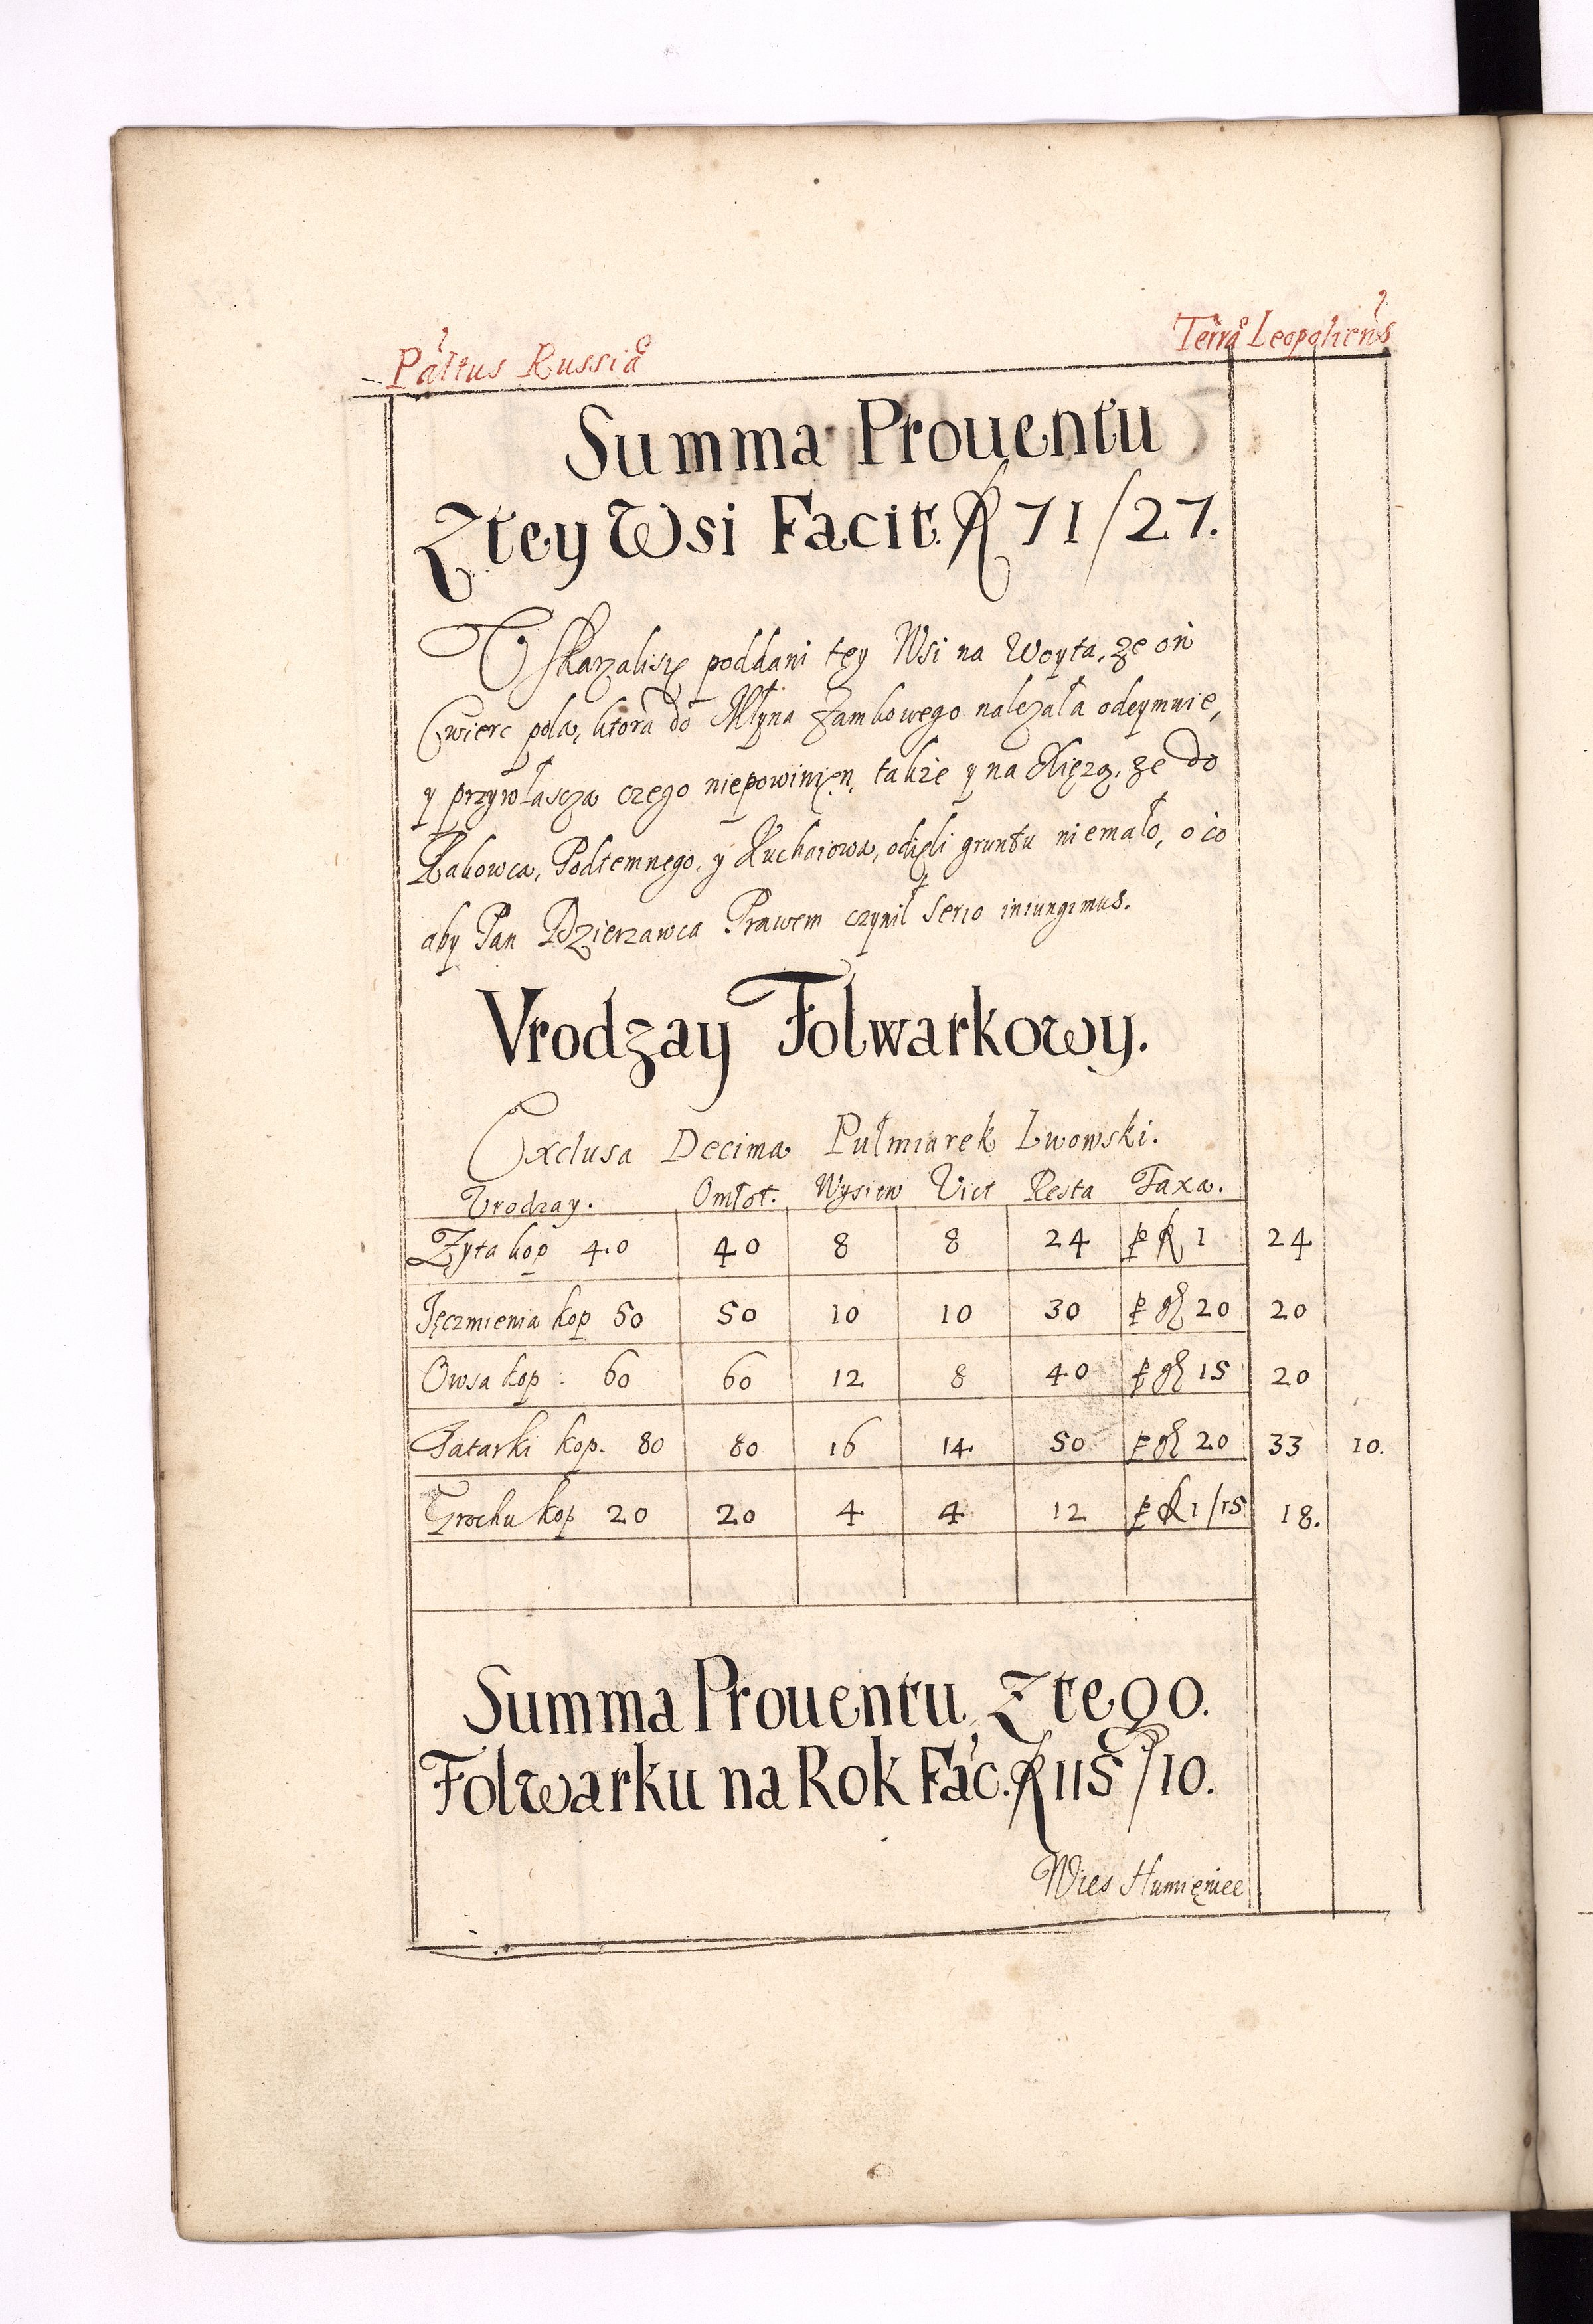 Pałtus Russiæ
Terræ Leopoliens
Summa Prouentu
Ztey Wsi Facit. fl 71/27.
Uskarzalisię poddani tęy Wsi na Woyta, ze on
Cwierc pola, ktora do Młyna Zamkowego nalezała odeymuie,
y przywłascza czego niepowinien, takze y na Xięzą, ze do
Rakowca, Podtemnego, y Kuchaiowa, odięli gruntu niemało, o co
aby Pan Dzierzawca Prawem czynił serio iniungimus.
Vrodzay Folwarkowy.
Exclusa Decima Pułmiarek Lwowski.
Vrodzay. Omłot. Wysiew Vict Resta Taxa.
Zyta kop 40 40 8 8 24 p fl 1 24
Jęczmienia kop 50 50 10 10 30 p gl 20 20
Owsa kop: 60 60 12 8 40 p gl 15 20
Tatarki kop. 80 80 16 14 50 p gl 20 33 10.
Grochu kop 20 20 4 4 12 p fl 1/15 18.
Summa Prouentu Ztego.
Folwarku na Rok Fac. fl 115/10.
Wies Humięniec